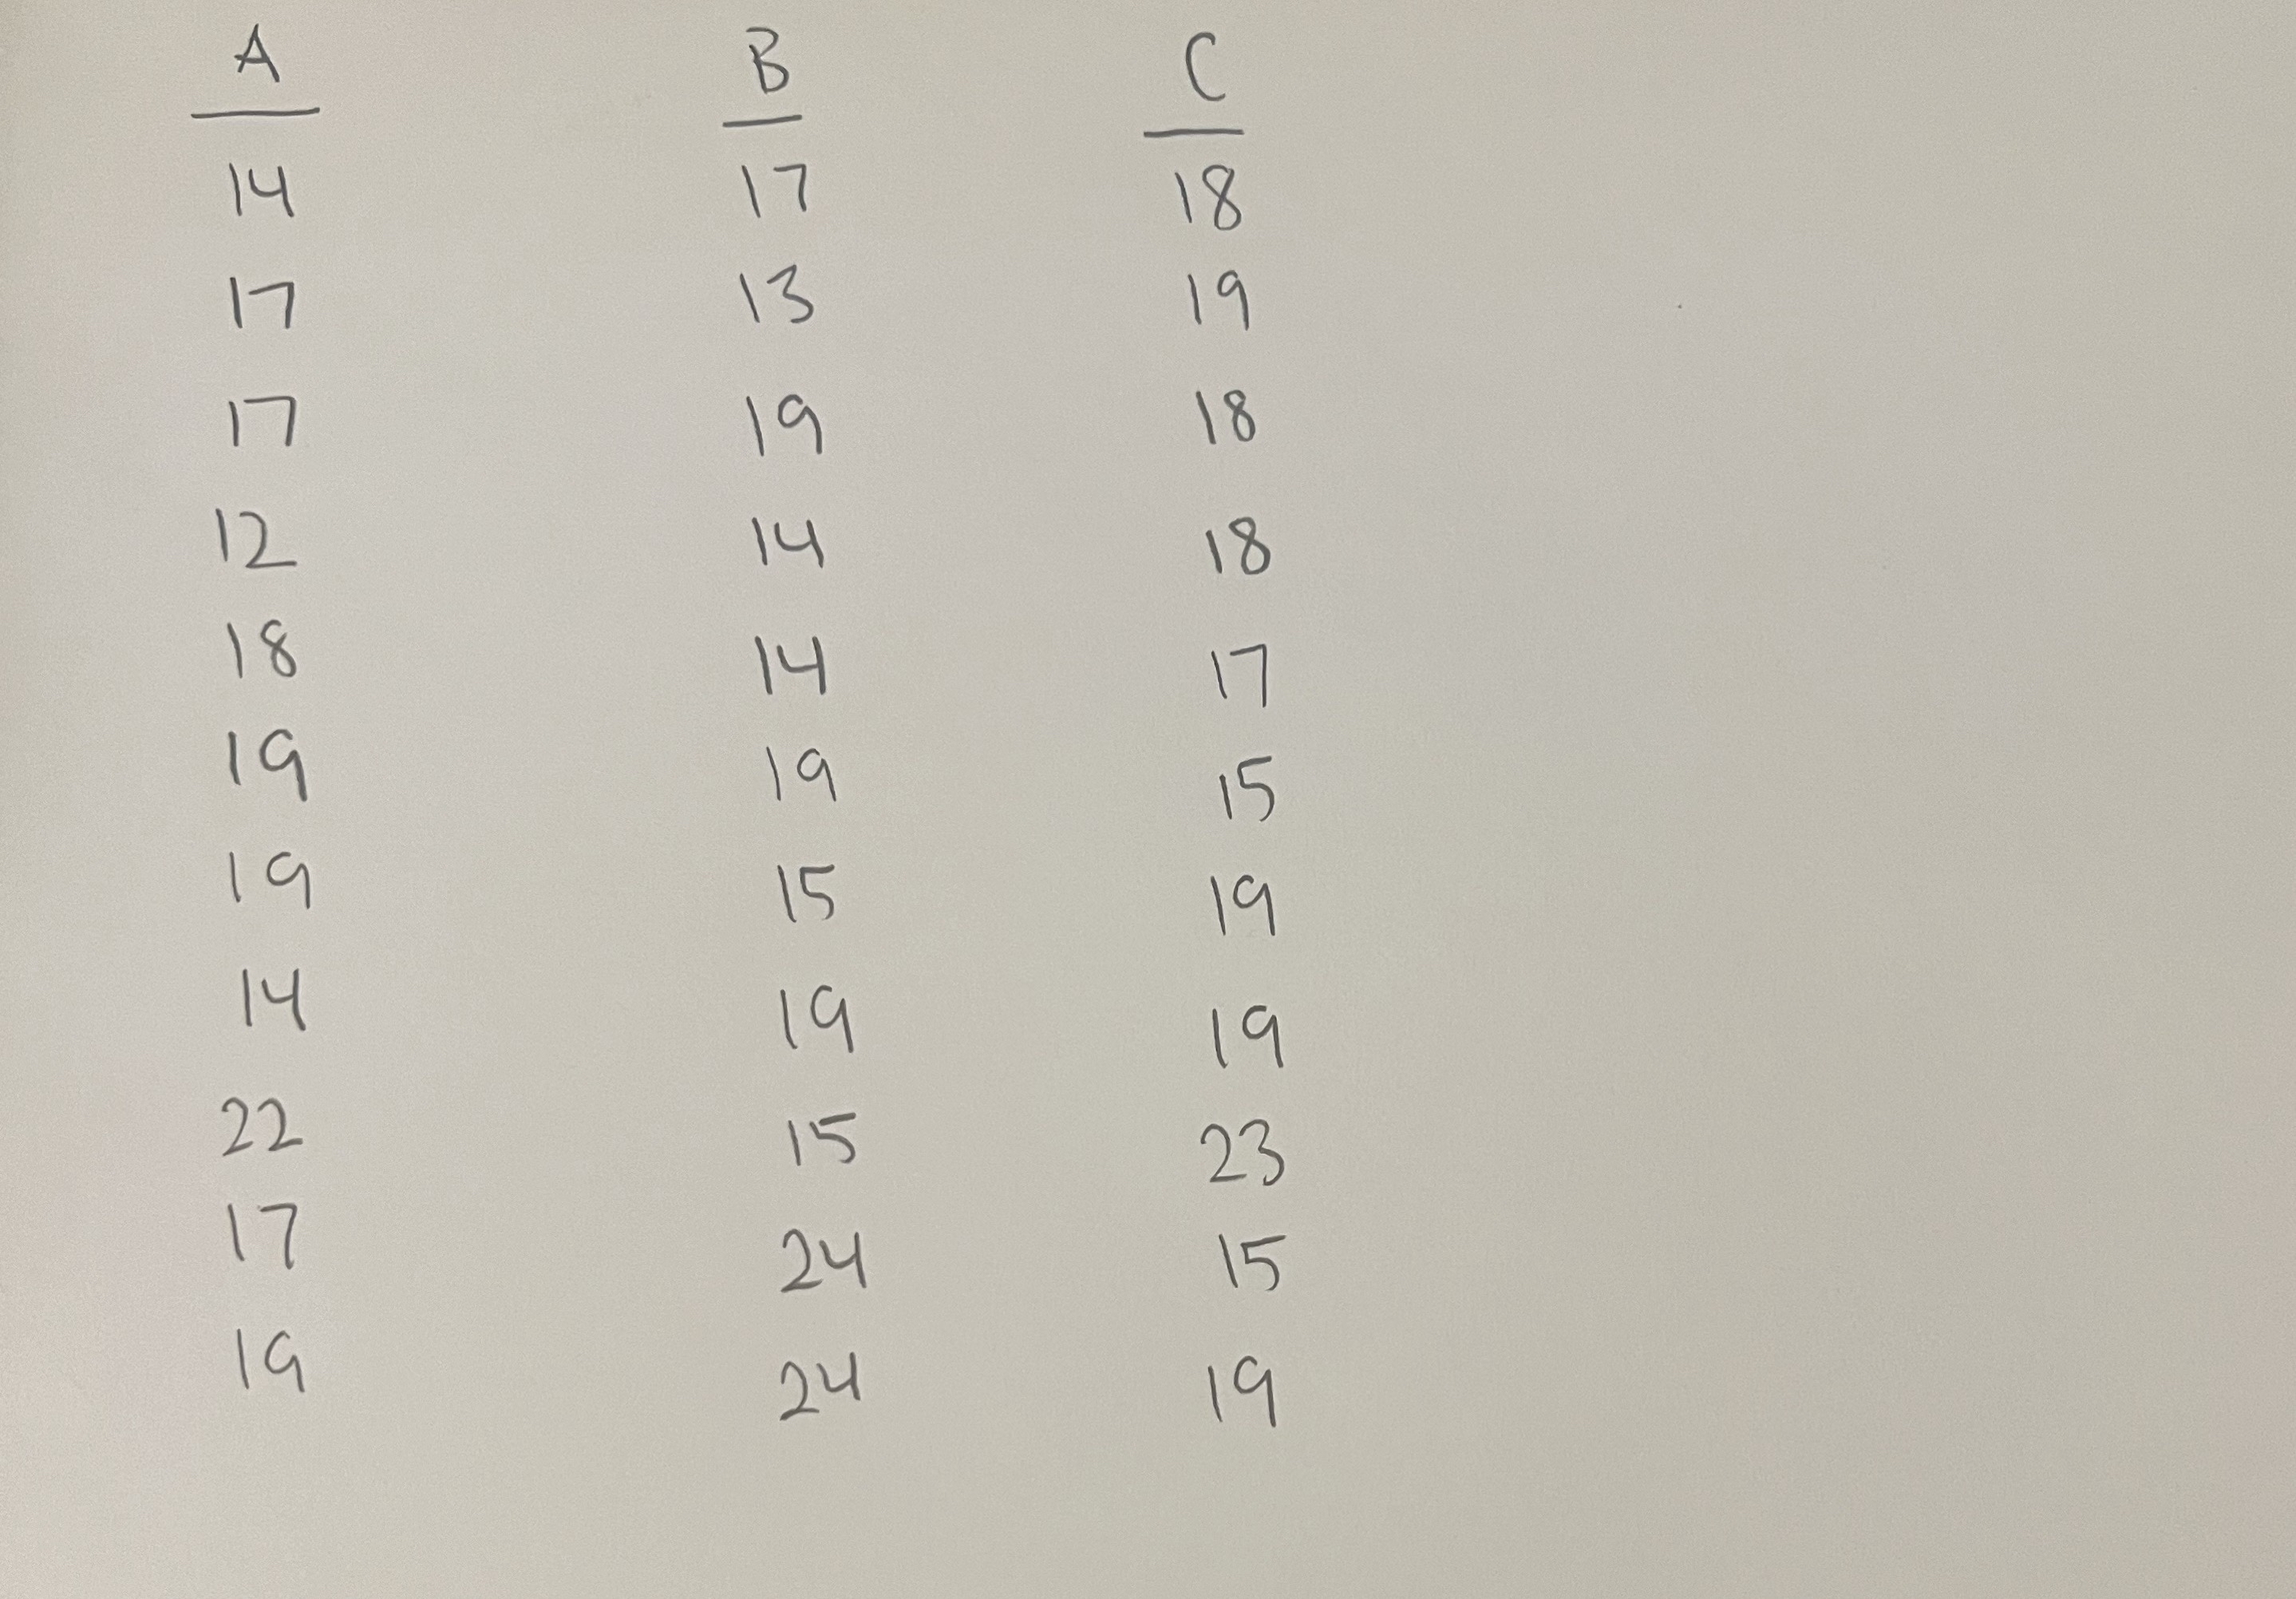 A B C
14 17 18
17 13 19
17 19 18
12 14 18
18 14 17
19 19 15
19 15 19
14 19 19
22 15 23
17 24 15
19 24 19